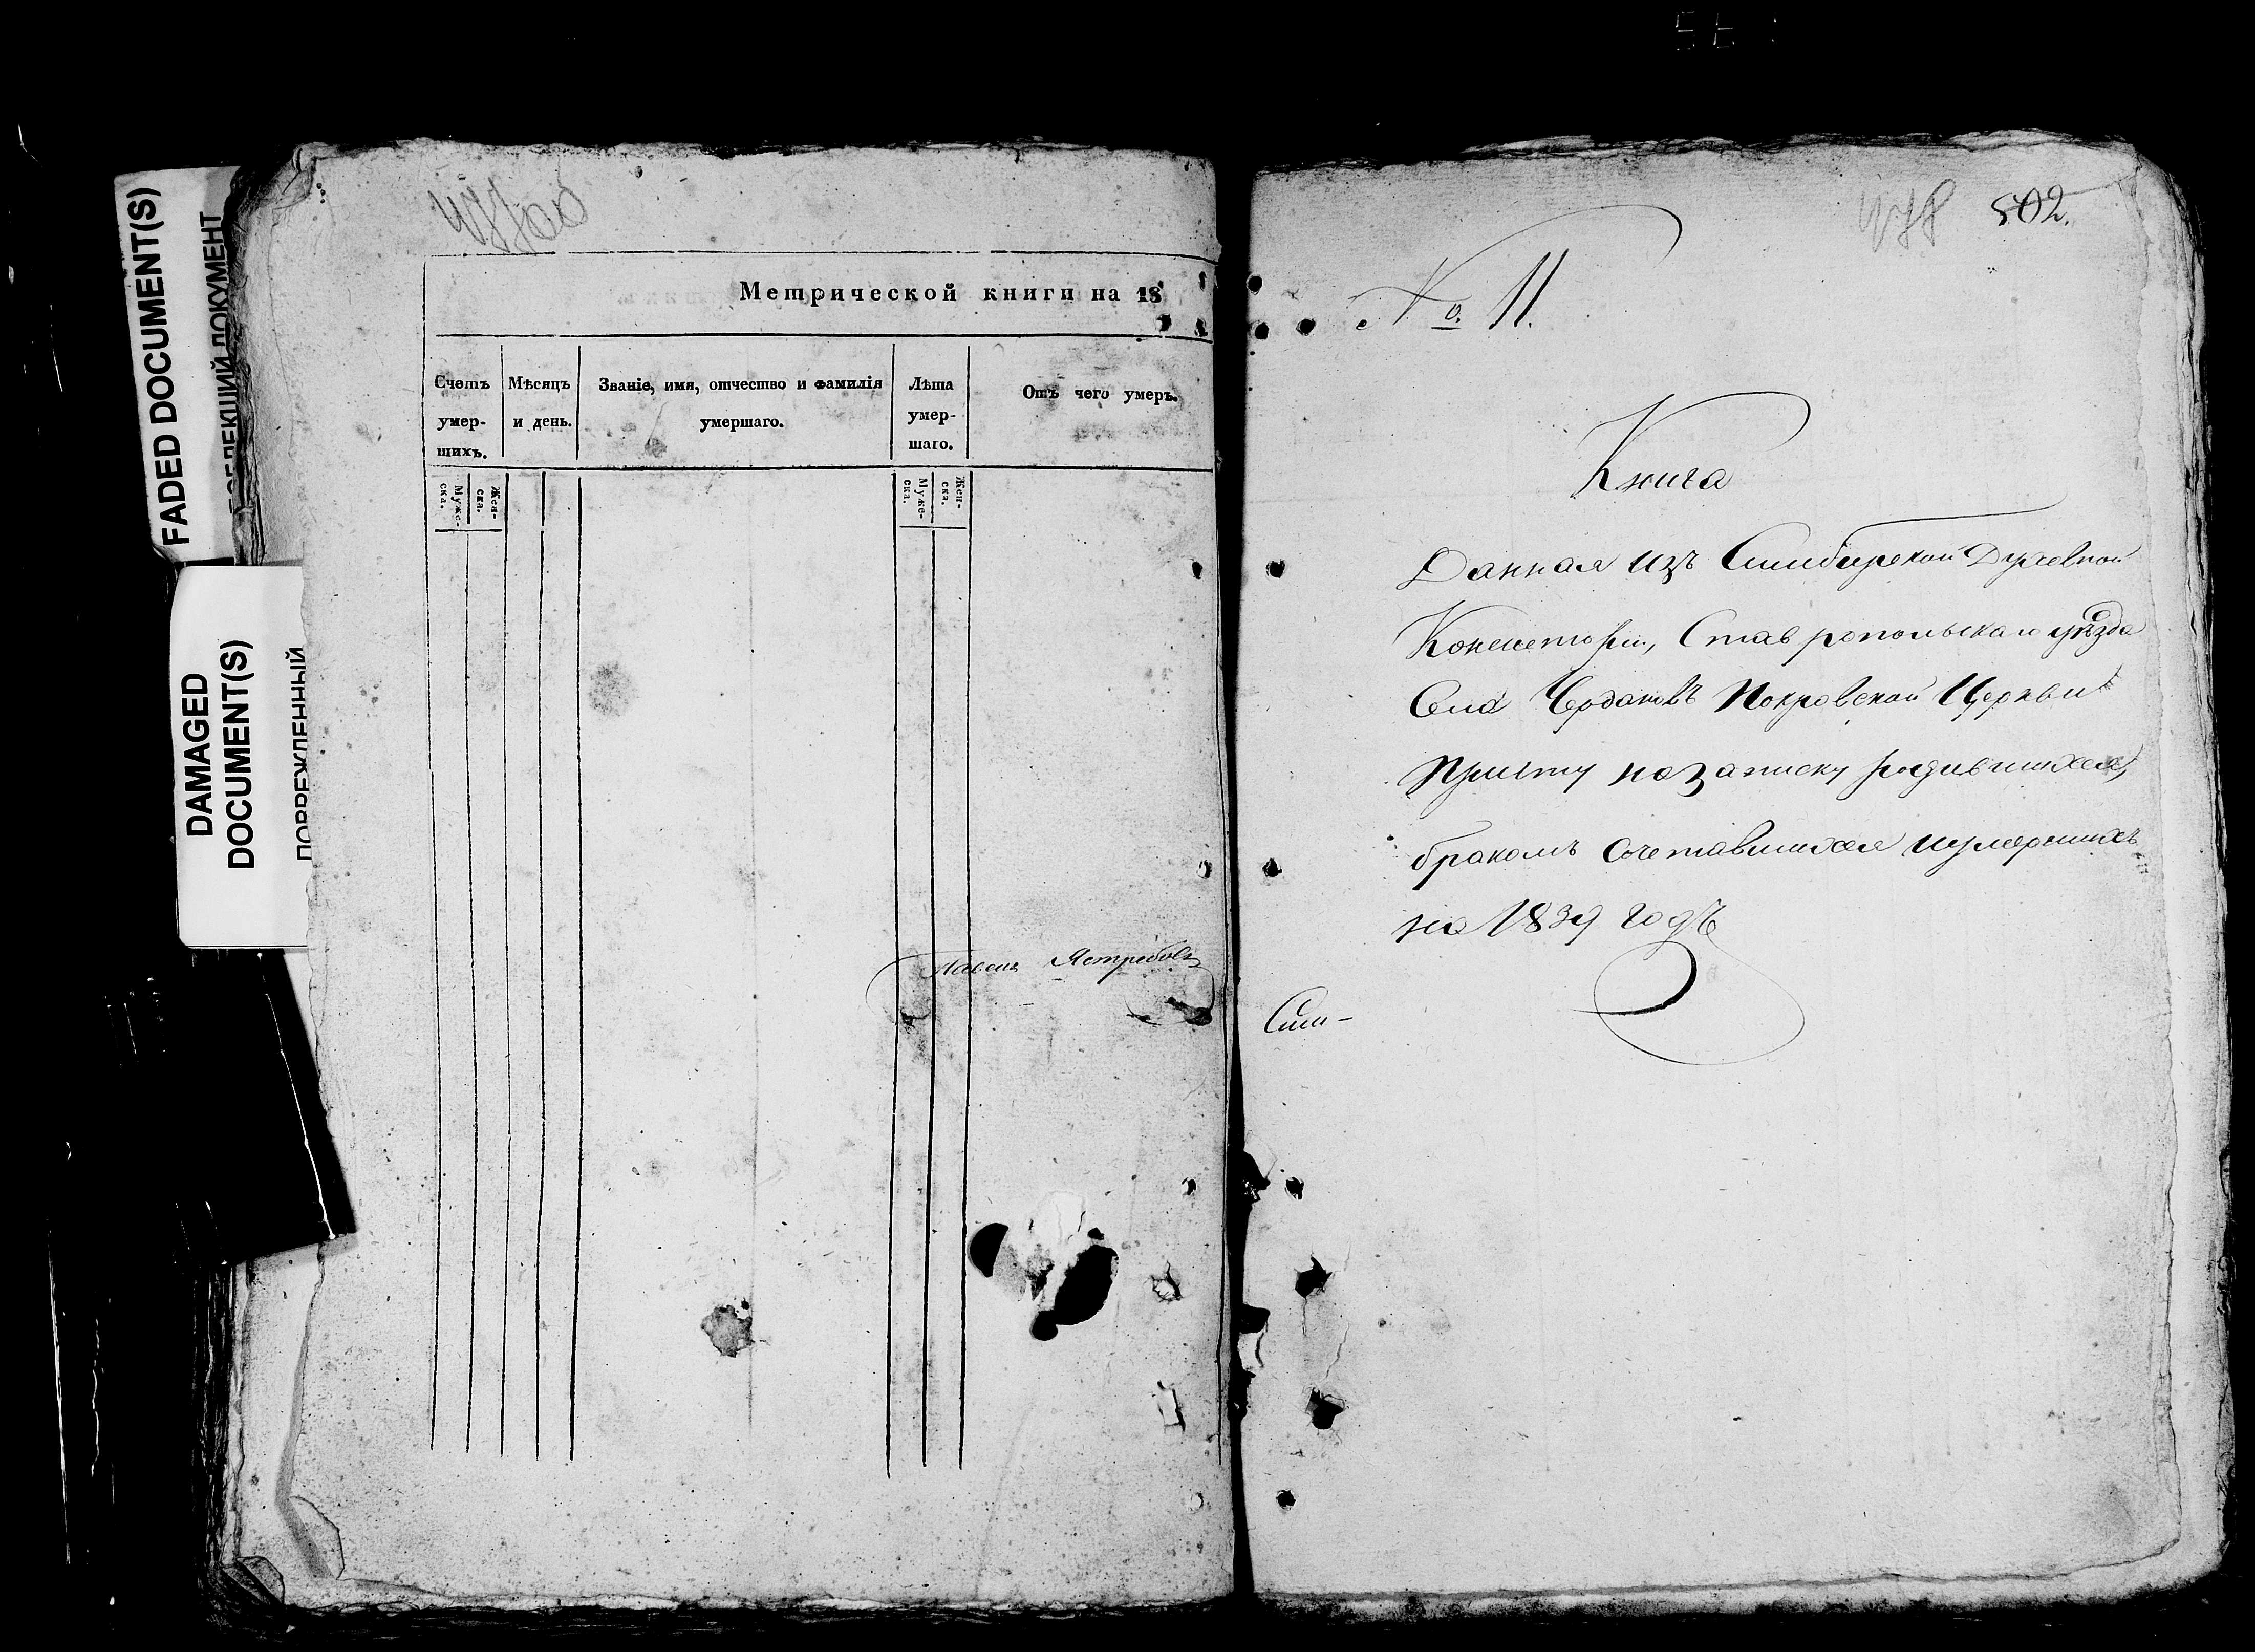 FADED DOCUMENT(S)
DAMAGED
DOCUMENT(S)
ПОВРЕЖДЕННЫЙ
Метрической книги на 18
Счетъ
умер-
шихъ.
Мѣсяцъ
и день.
Званіе, имя, отчество и фамилія
умершаго.
Лѣта
умер-
шаго.
Отъ чего умеръ.
Муже-
ска.
Жен-
ска.
Муже-
ска.
Жен-
ска.
Павелъ Ястребовъ
478 502.
№ 11.
Книга
Данная изъ Симбирской Духовной
Консисторіи, Ставропольскаго уѣзда
Села Чердаковъ Покровской Церкви
Причту на записку родившихся,
бракомъ сочетавшихся и умершихъ
на 1839 годъ
Сим-